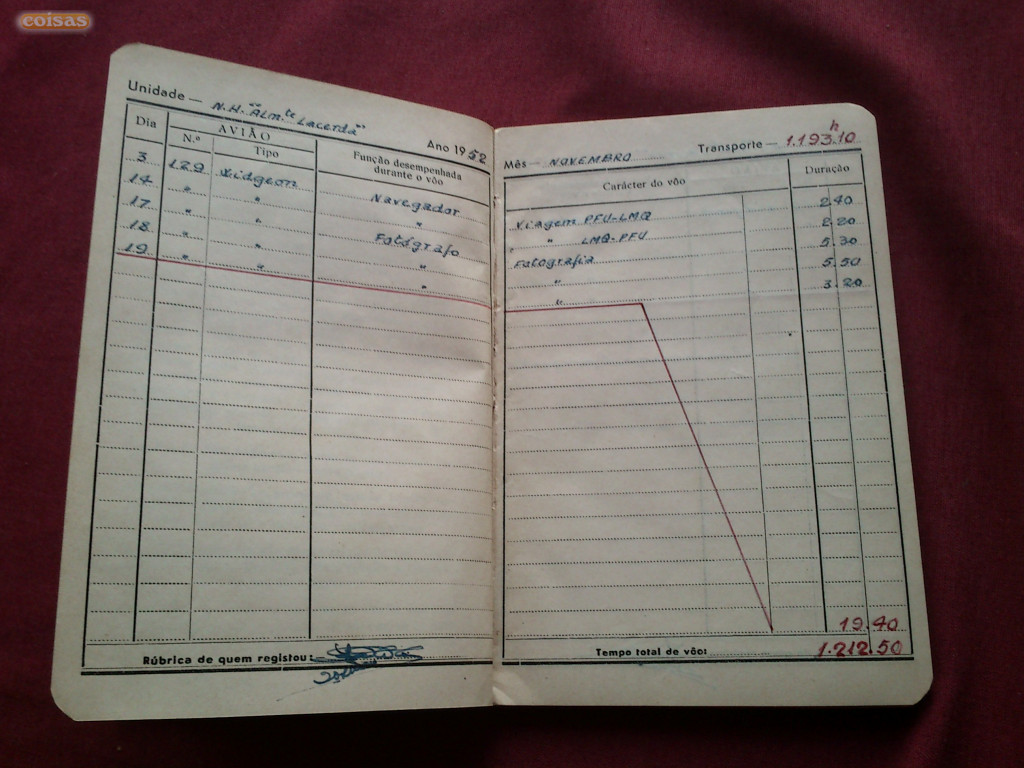 coisas
Unidade — N.H. "Alm.te Lacerda"
Ano 1952
Dia
AVIÃO
N.º
Tipo
Função desempenhada
durante o vôo
3 129 Widgeon Navegador
14 " " "
17 " " Fotógrafo
18 " " "
19 " " "
Rúbrica de quem registou:
Mês — NOVEMBRO
Transporte — 1.193.10 h
Carácter do vôo
Duração
Viagem PFU-LMQ 2.40
" LMQ-PFU 2.20
Fotografia 5.30
" 5.50
" 3.20
19.40
Tempo total de vôo: 1.212.50